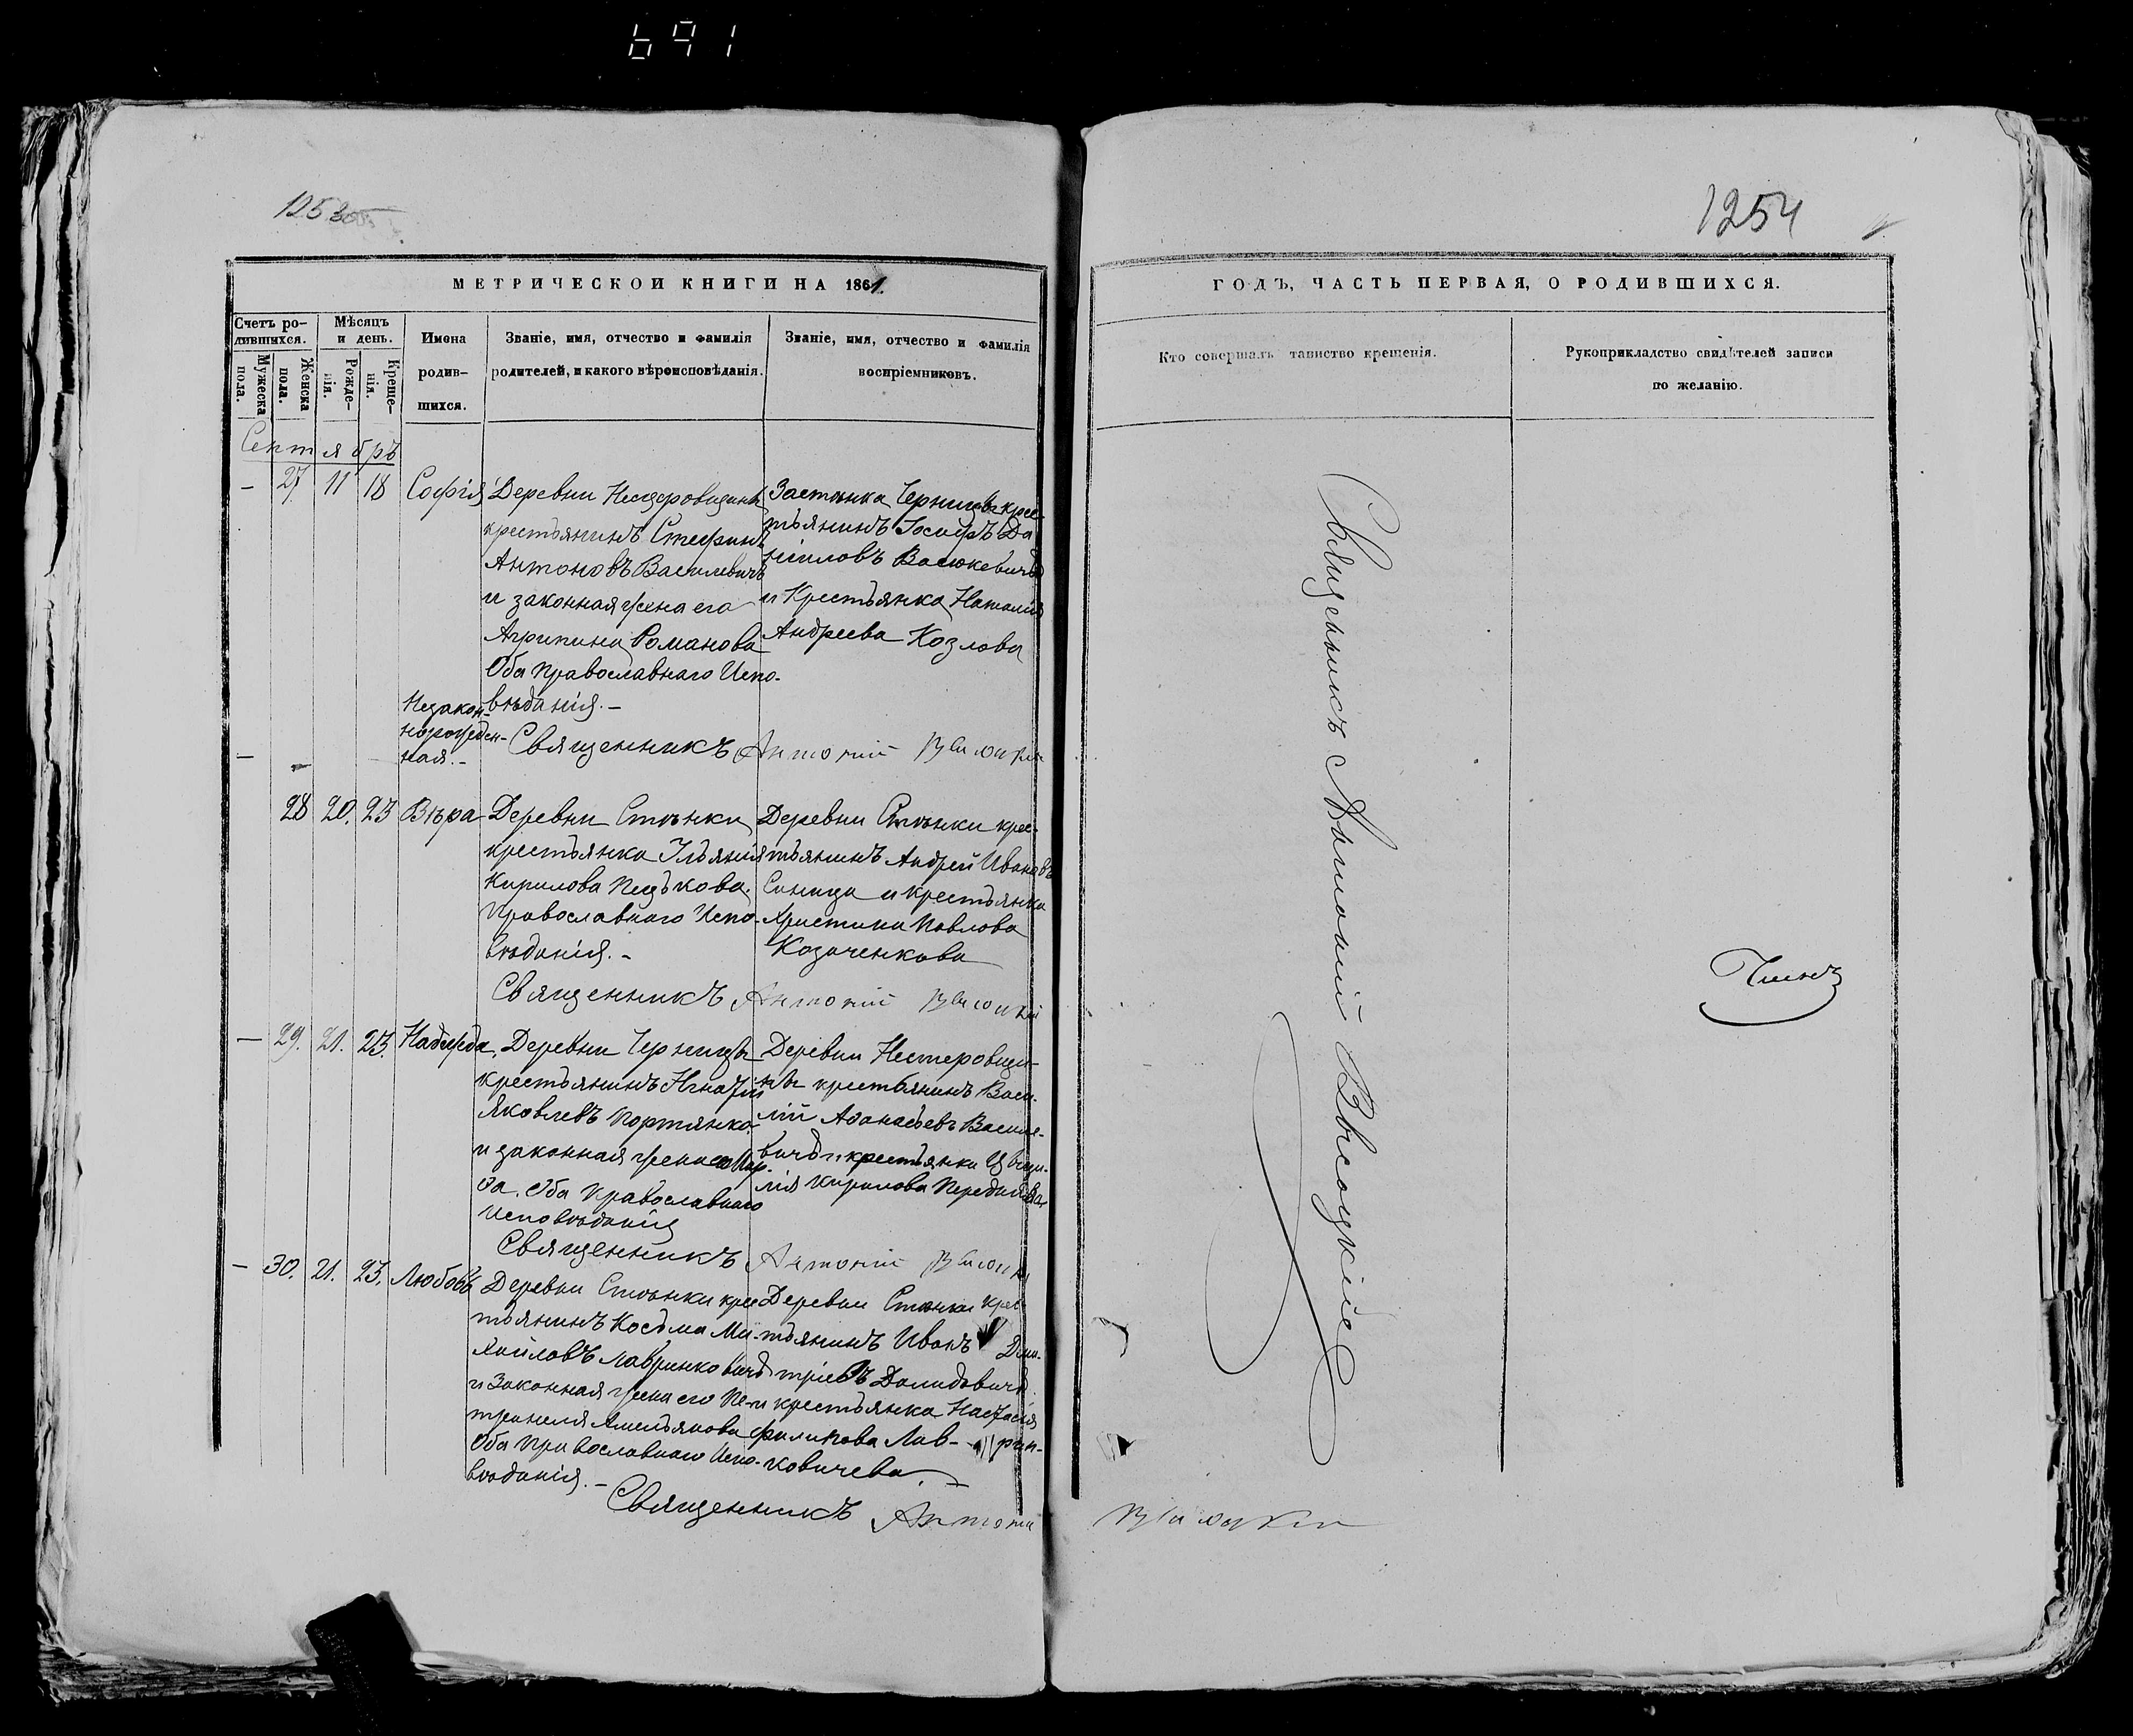 691
1253об
1254
МЕТРИЧЕСКОЙ КНИГИ НА 1861
ГОДЪ, ЧАСТЬ ПЕРВАЯ, О РОДИВШИХСЯ.
Счетъ ро-
дившихся.
Мужеска
пола.
Женска
пола.
Мѣсяцъ
и день.
Рожде-
нія.
Креще-
нія.
Имена
родив-
шихся.
Званіе, имя, отчество и фамилія
родителей, и какого вѣроисповѣданія.
Званіе, имя, отчество и фамилія
воспріемниковъ.
Кто совершалъ таинство крещенія.
Рукоприкладство свидѣтелей записи
по желанію.
Сентябръ
- 27 11 18 Софія
Деревни
крестьянинъ Стефанъ
Антоновъ Василевичъ
и законная жена его
Агрипина Романова
Оба Православнаго Испо-
вѣданія.-
Застѣнка Черница крес-
тьянинъ Іосифъ Да
ніиловъ Васюкевичъ
и Крестьянка Наталія
Андреева Козлова
Священникъ Антоній Высоцкій
Незакон-
норожден-
ная.-
28 20. 23 Вѣра
Деревни Стѣнки
крестьянка Ульянія
Кирилова
Православнаго Испо-
вѣданія.-
Деревни Стѣнки крес-
тьянинъ Андрей Ивановъ
Синица и крестьянка
Христина Павлова
Козаченкова
Священникъ Антоній Высоцкій
- 29. 21. 23. Надежда
Деревни Черницы
крестьянинъ Игнатій
Яковлевъ Портянко
и законная жена его Мар-
ѳа. Оба Православнаго
Исповѣданія
Деревни Нестеровщи-
ны крестьянинъ Васи-
лій Аѳанасьевъ Василе-
вичъ и крестьянка
Кирилова
Священникъ Антоній Высоцкій
- 30. 21. 23. Любовь
Деревни Стѣнки крес
тьянинъ Косьма Ми-
хайловъ Лавринковичъ
и Законная жена его Пе-
тронеля Амельянова
Оба Православнаго Испо-
вѣданія.-
Деревни Стѣнки крес
тьянинъ Иванъ Дми-
тріевъ Демидовичъ
и крестьянка Настасія
Филипова Лав-рин-
ковичева.
Священникъ Антоній
Высоцкій
Священникъ Антоній Высоцкій